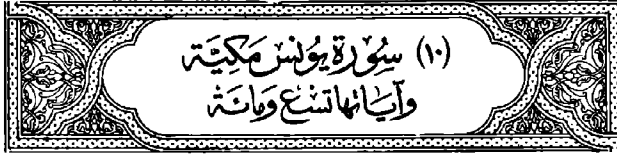 (١٠) سُورَة يُونسُ مَكِيَّة
وَآيَاتهَا تِسْع وَمائَة